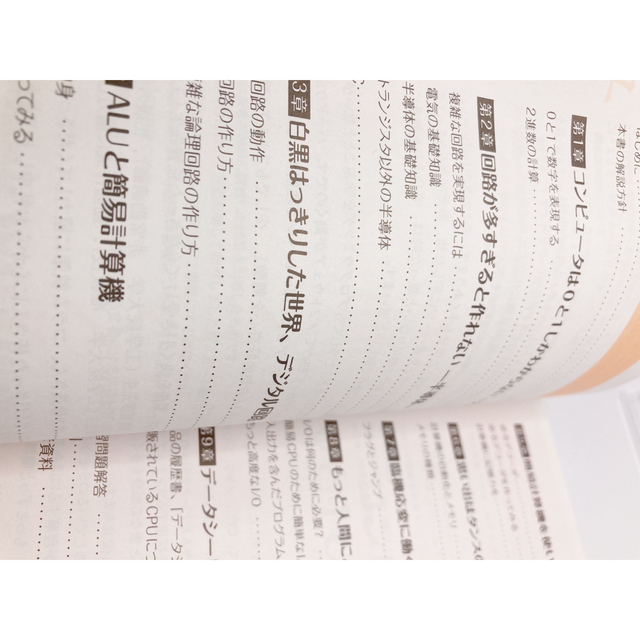 はじめに
本書の解説方針
第1章 コンピュータは0と1しかわから
0と1で数字を表現する
2進数の計算
第2章 回路が多すぎると作れない
複雑な回路を実現するには
電気の基礎知識
半導体の基礎知識
トランジスタ以外の半導体
3章 白黒はっきりした世界、デジタル回
回路の動作
回路の作り方
複雑な論理回路の作り方
ALUと簡易計算機
ってみる
メモリ
第7章 臨機応変に働
フラグとジャンプ
第8章 もっと人間に
I/Oは何のために必要?
簡易CPUのために簡単な
入出力を含んだプログラム
もっと高度なI/O
第9章 データシー
品の履歴書、「データシ
販されているCPUにつ
習問題解答
資料